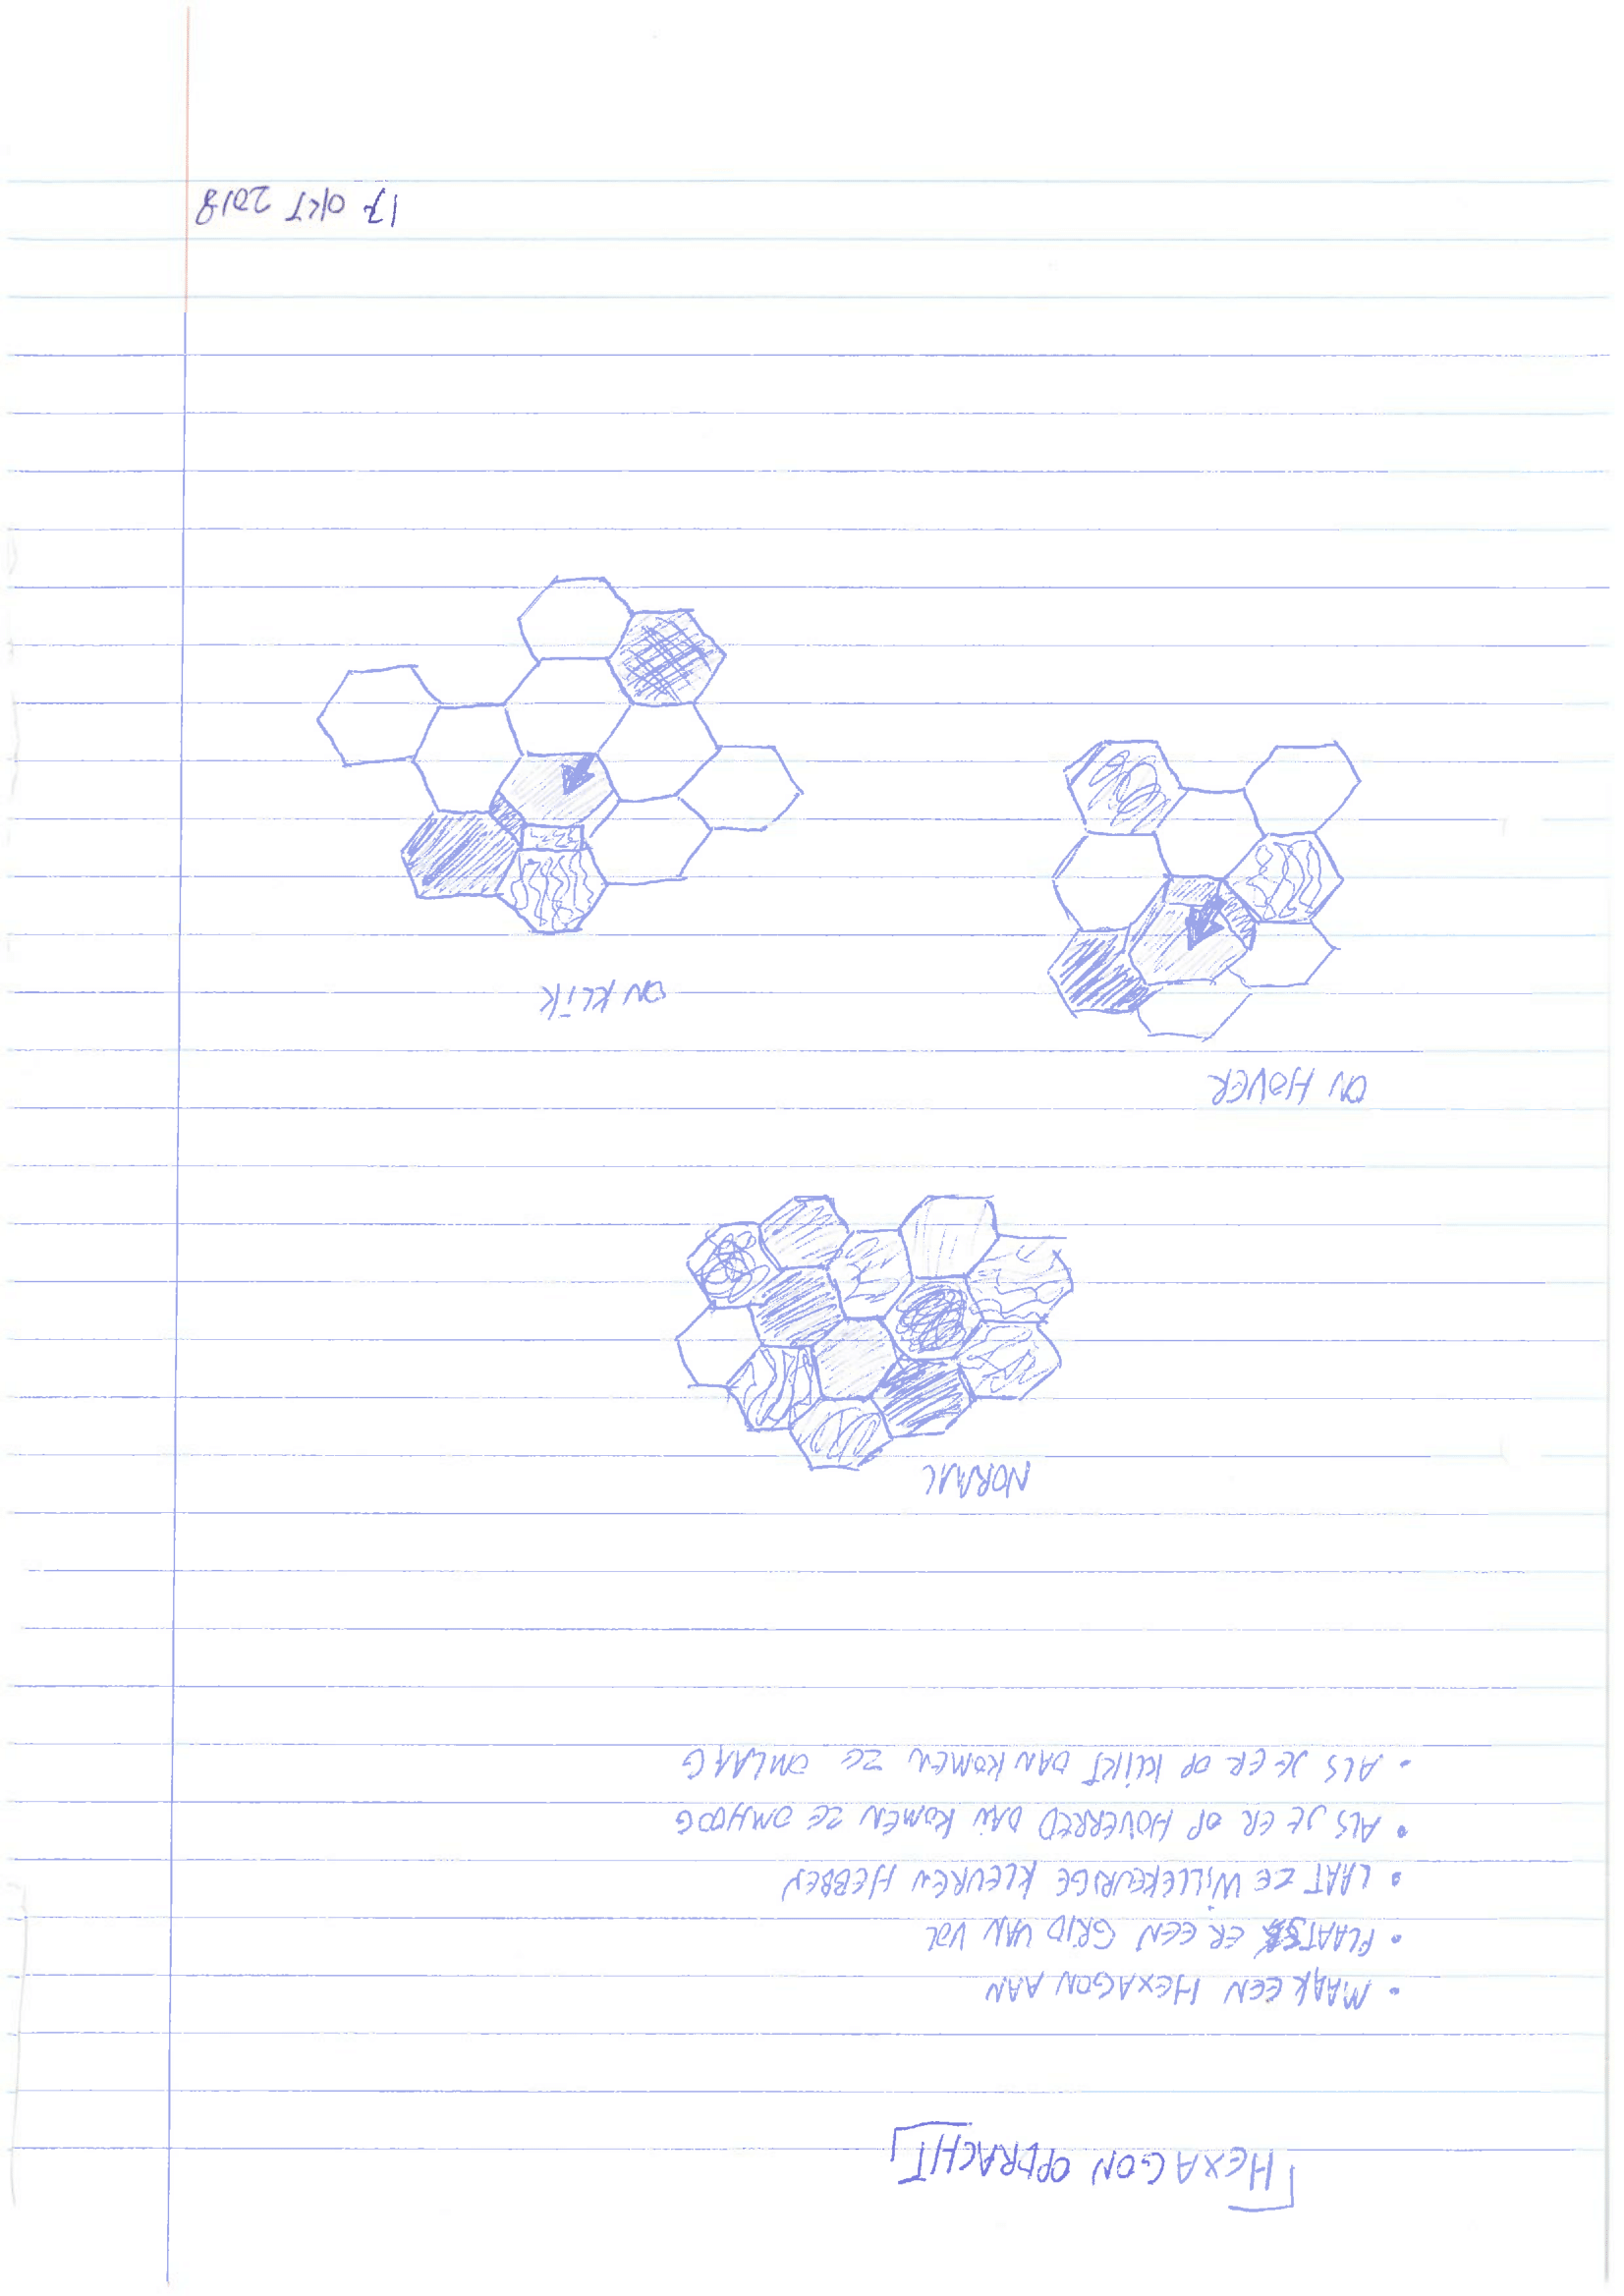 [HEXAGON OPDRACHT]
• MAAK EEN HEXAGON AAN
• PLAATS ER EEN GRID VAN VOL
• LAAT ZE WILLEKEURIGE KLEUREN HEBBEN
• ALS JE ER OP HOVERRED DAN KOMEN ZE OMHOOG
• ALS JE ER OP KLIKT DAN KOMEN ZE OMLAAG
NORMAL
ON HOVER
ON KLIK
17 OKT 2018